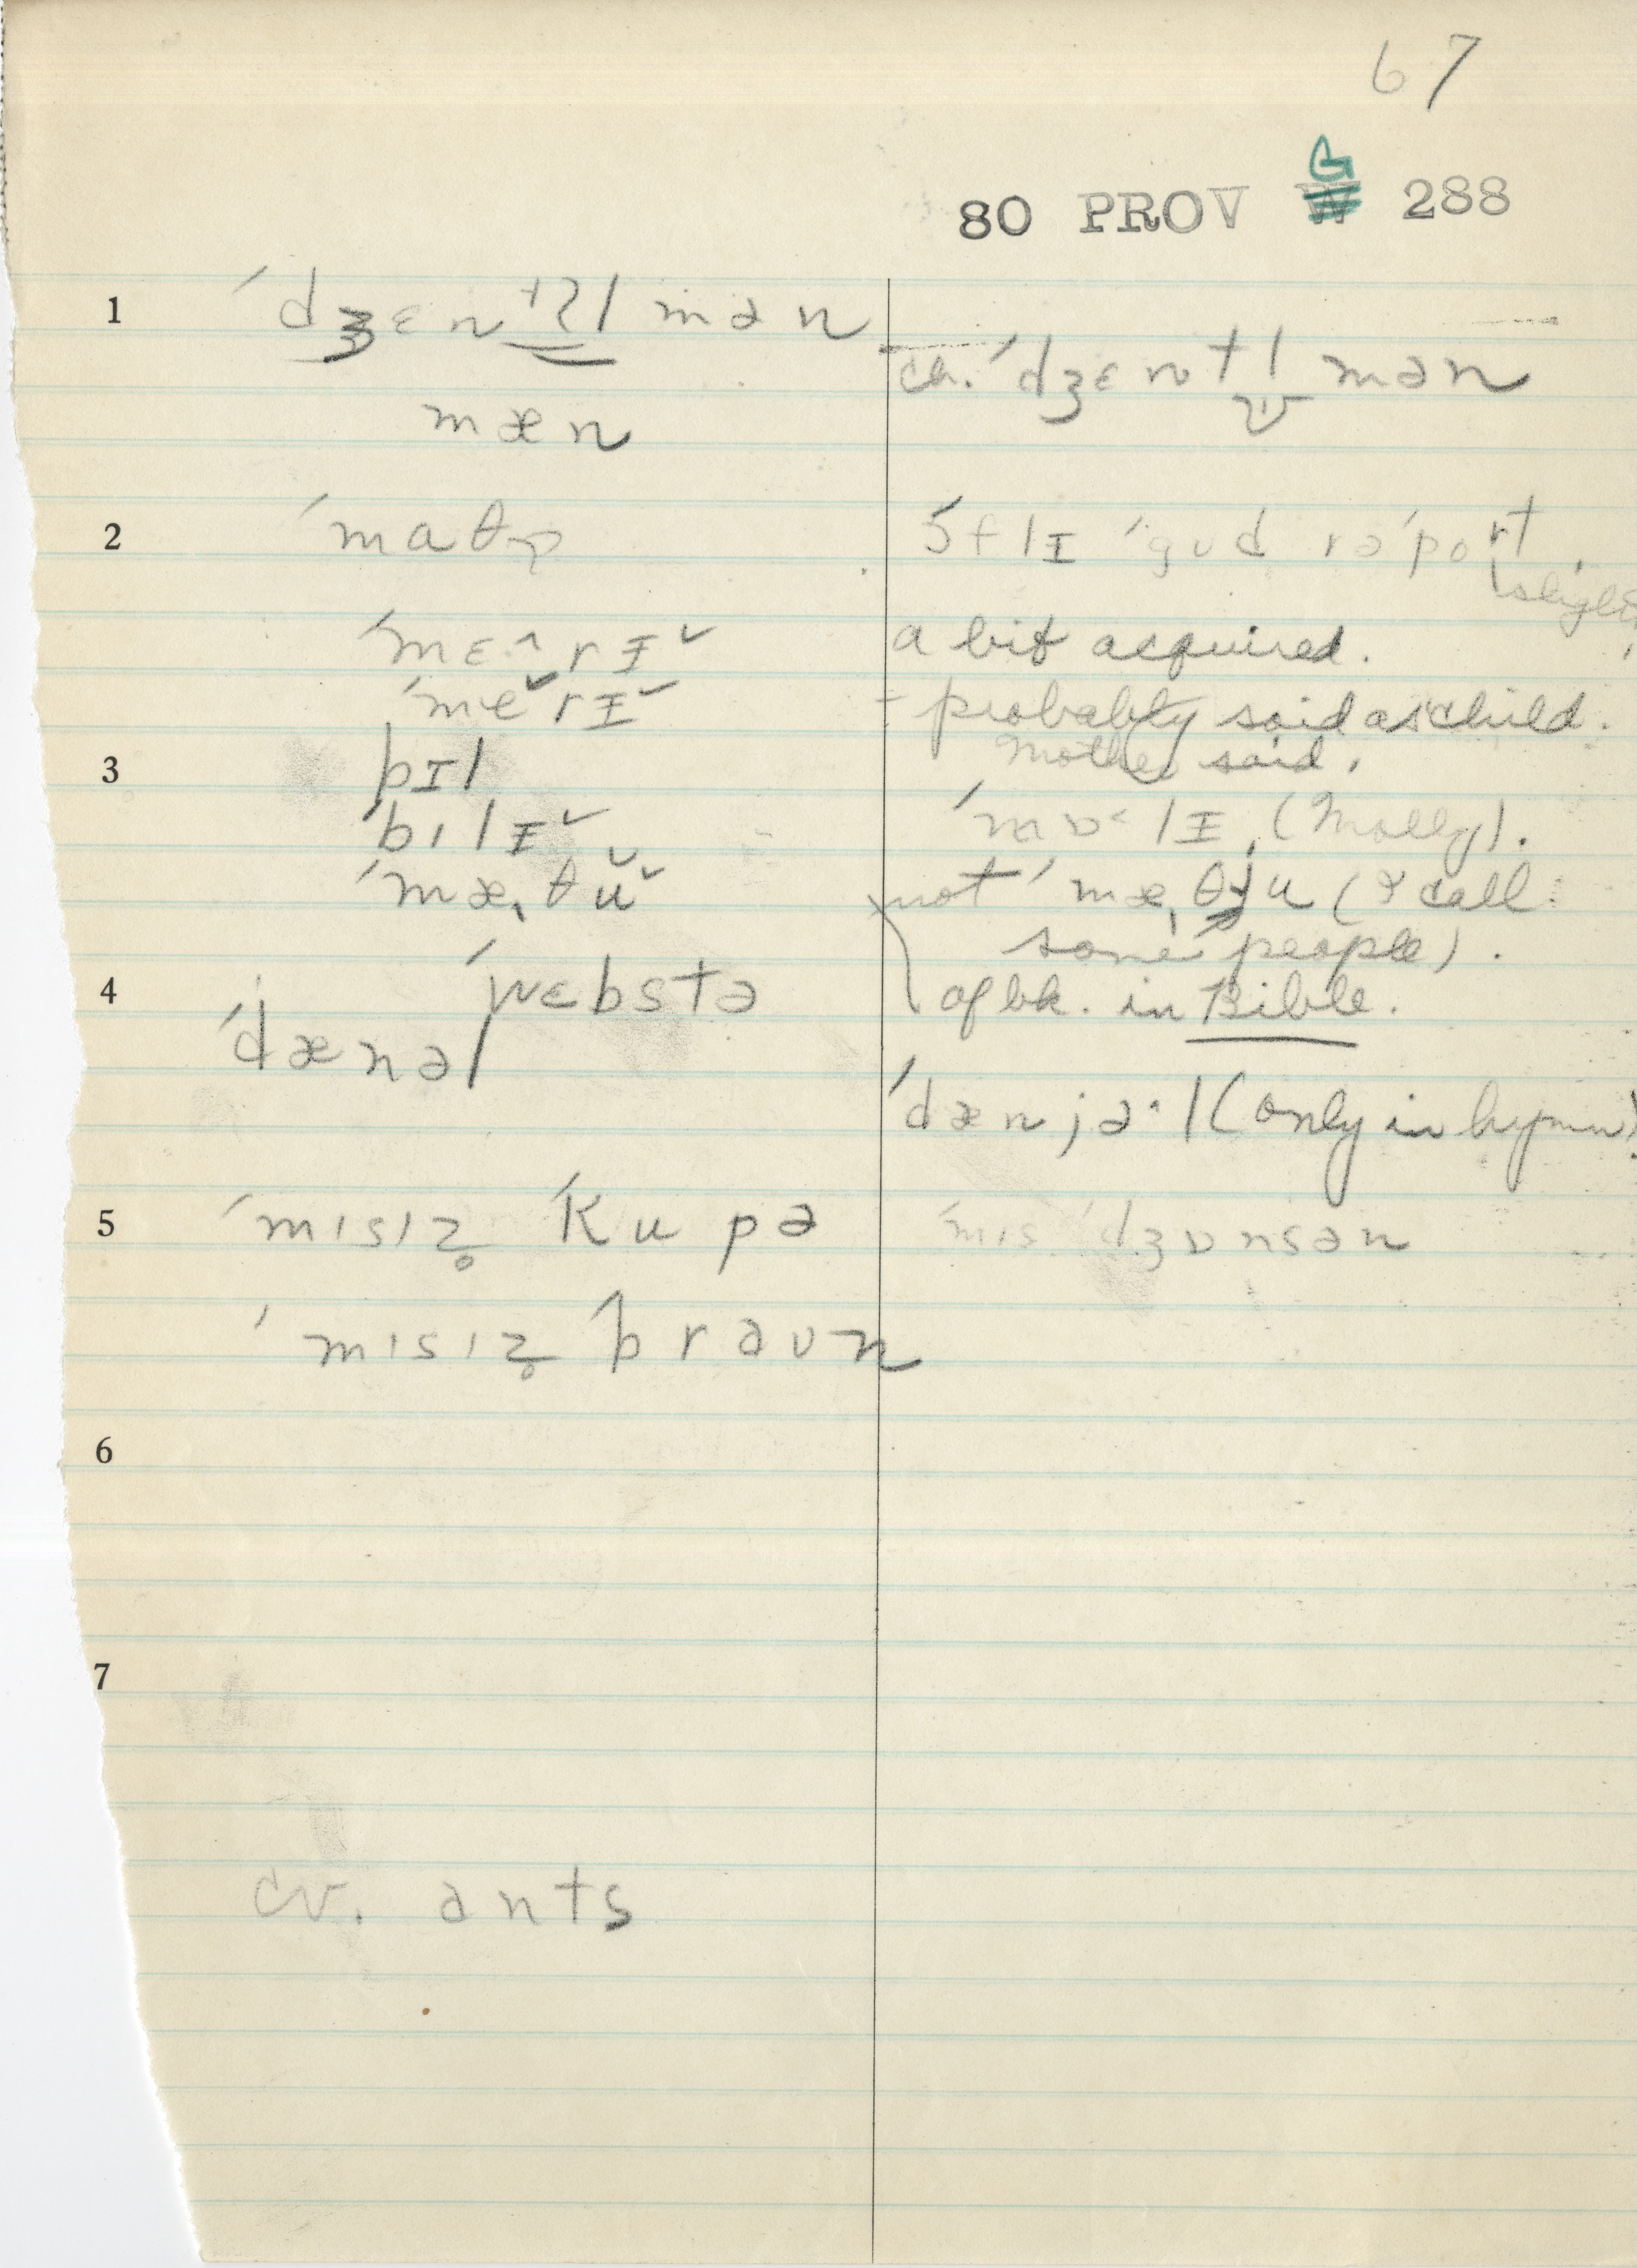 67
80 PROV G 288
1 ˈdʒɛntʔl mən
ch. ˈdʒɛntl̬ mən
mæn
2
ˈgʊd rəˈport
slight
ˈmɛ˄rɪ˅ a bit acquired.
ˈme˅rɪ˅ - probably said as child.
3 bɪl Mother said.
ˈbɪlɪ˅ ˈmɒ˂lɪ (Molly).
ˈmæˌθu˅ not ˈmæˌθju (I call
some people).
4 ˈwɛbstə of bk. in Bible.
ˈdænəl
ˈdænjəˑl (only in hymn)
5 ˈmɪsɪz̥ ˈkupə ˈmɪs ˈdʒɒnsən
ˈmɪsɪz̥ ˈbraʊn
6
7
cv. ants